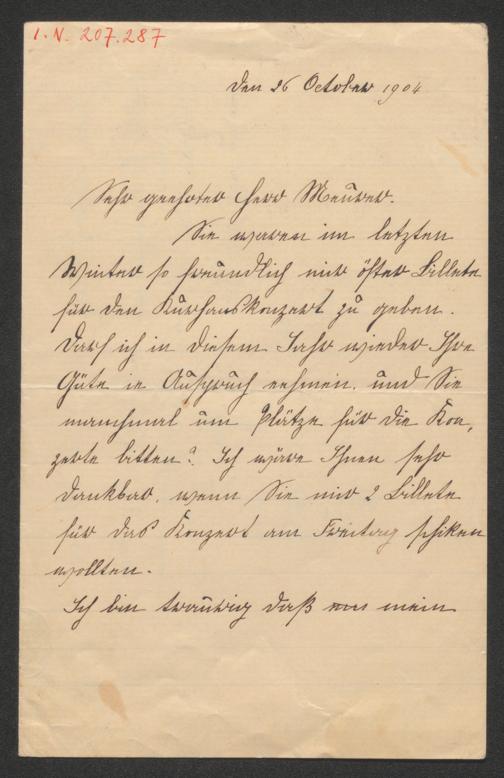 I. N. 207.287
den 26 October 1904
Sehr geehrter Herr Meurer.
Sie waren im letzten
Winter so freundlich mir öfter Billete
für den Kurhauskonzert zu geben.
Darf ich in diesem Jahr wieder Ihre
Güte in Anspruch nehmen, und Sie
manchmal um Plätze für die Kon,
zerte bitten? Ich wäre Ihnen sehr
dankbar, wenn Sie mir 2 Billete
für das Konzert am Freitag schiken
wollten.
Ich bin traurig daß mein